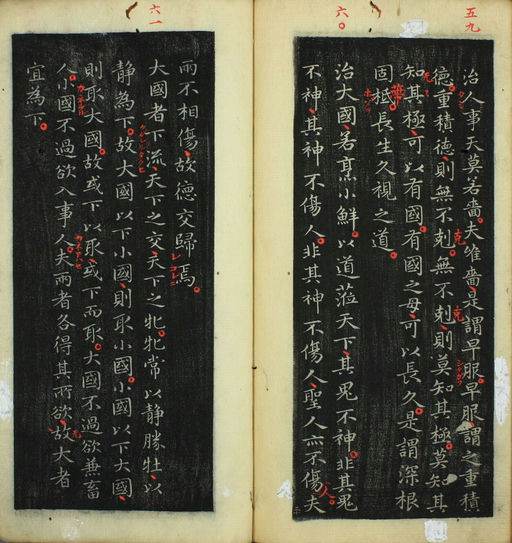 五九
治人事天莫若嗇夫唯嗇是謂早服早服謂之重積
德重積德則無不剋無不剋則莫知其極莫知其
知其極可以有國有國之母可以長久是謂深根
固柢長生久視之道
六〇
治大國若烹小鮮以道蒞天下其鬼不神非其鬼
不神其神不傷人非其神不傷人聖人亦不傷夫
兩不相傷故德交歸焉
六一
大國者下流天下之交天下之牝牝常以静勝牡以
静為下故大國以下小國則取小國小國以下大國
則取大國故或下以取或下而取大國不過欲兼畜
人小國不過欲入事人夫兩者各得其所欲故大者
宜為下